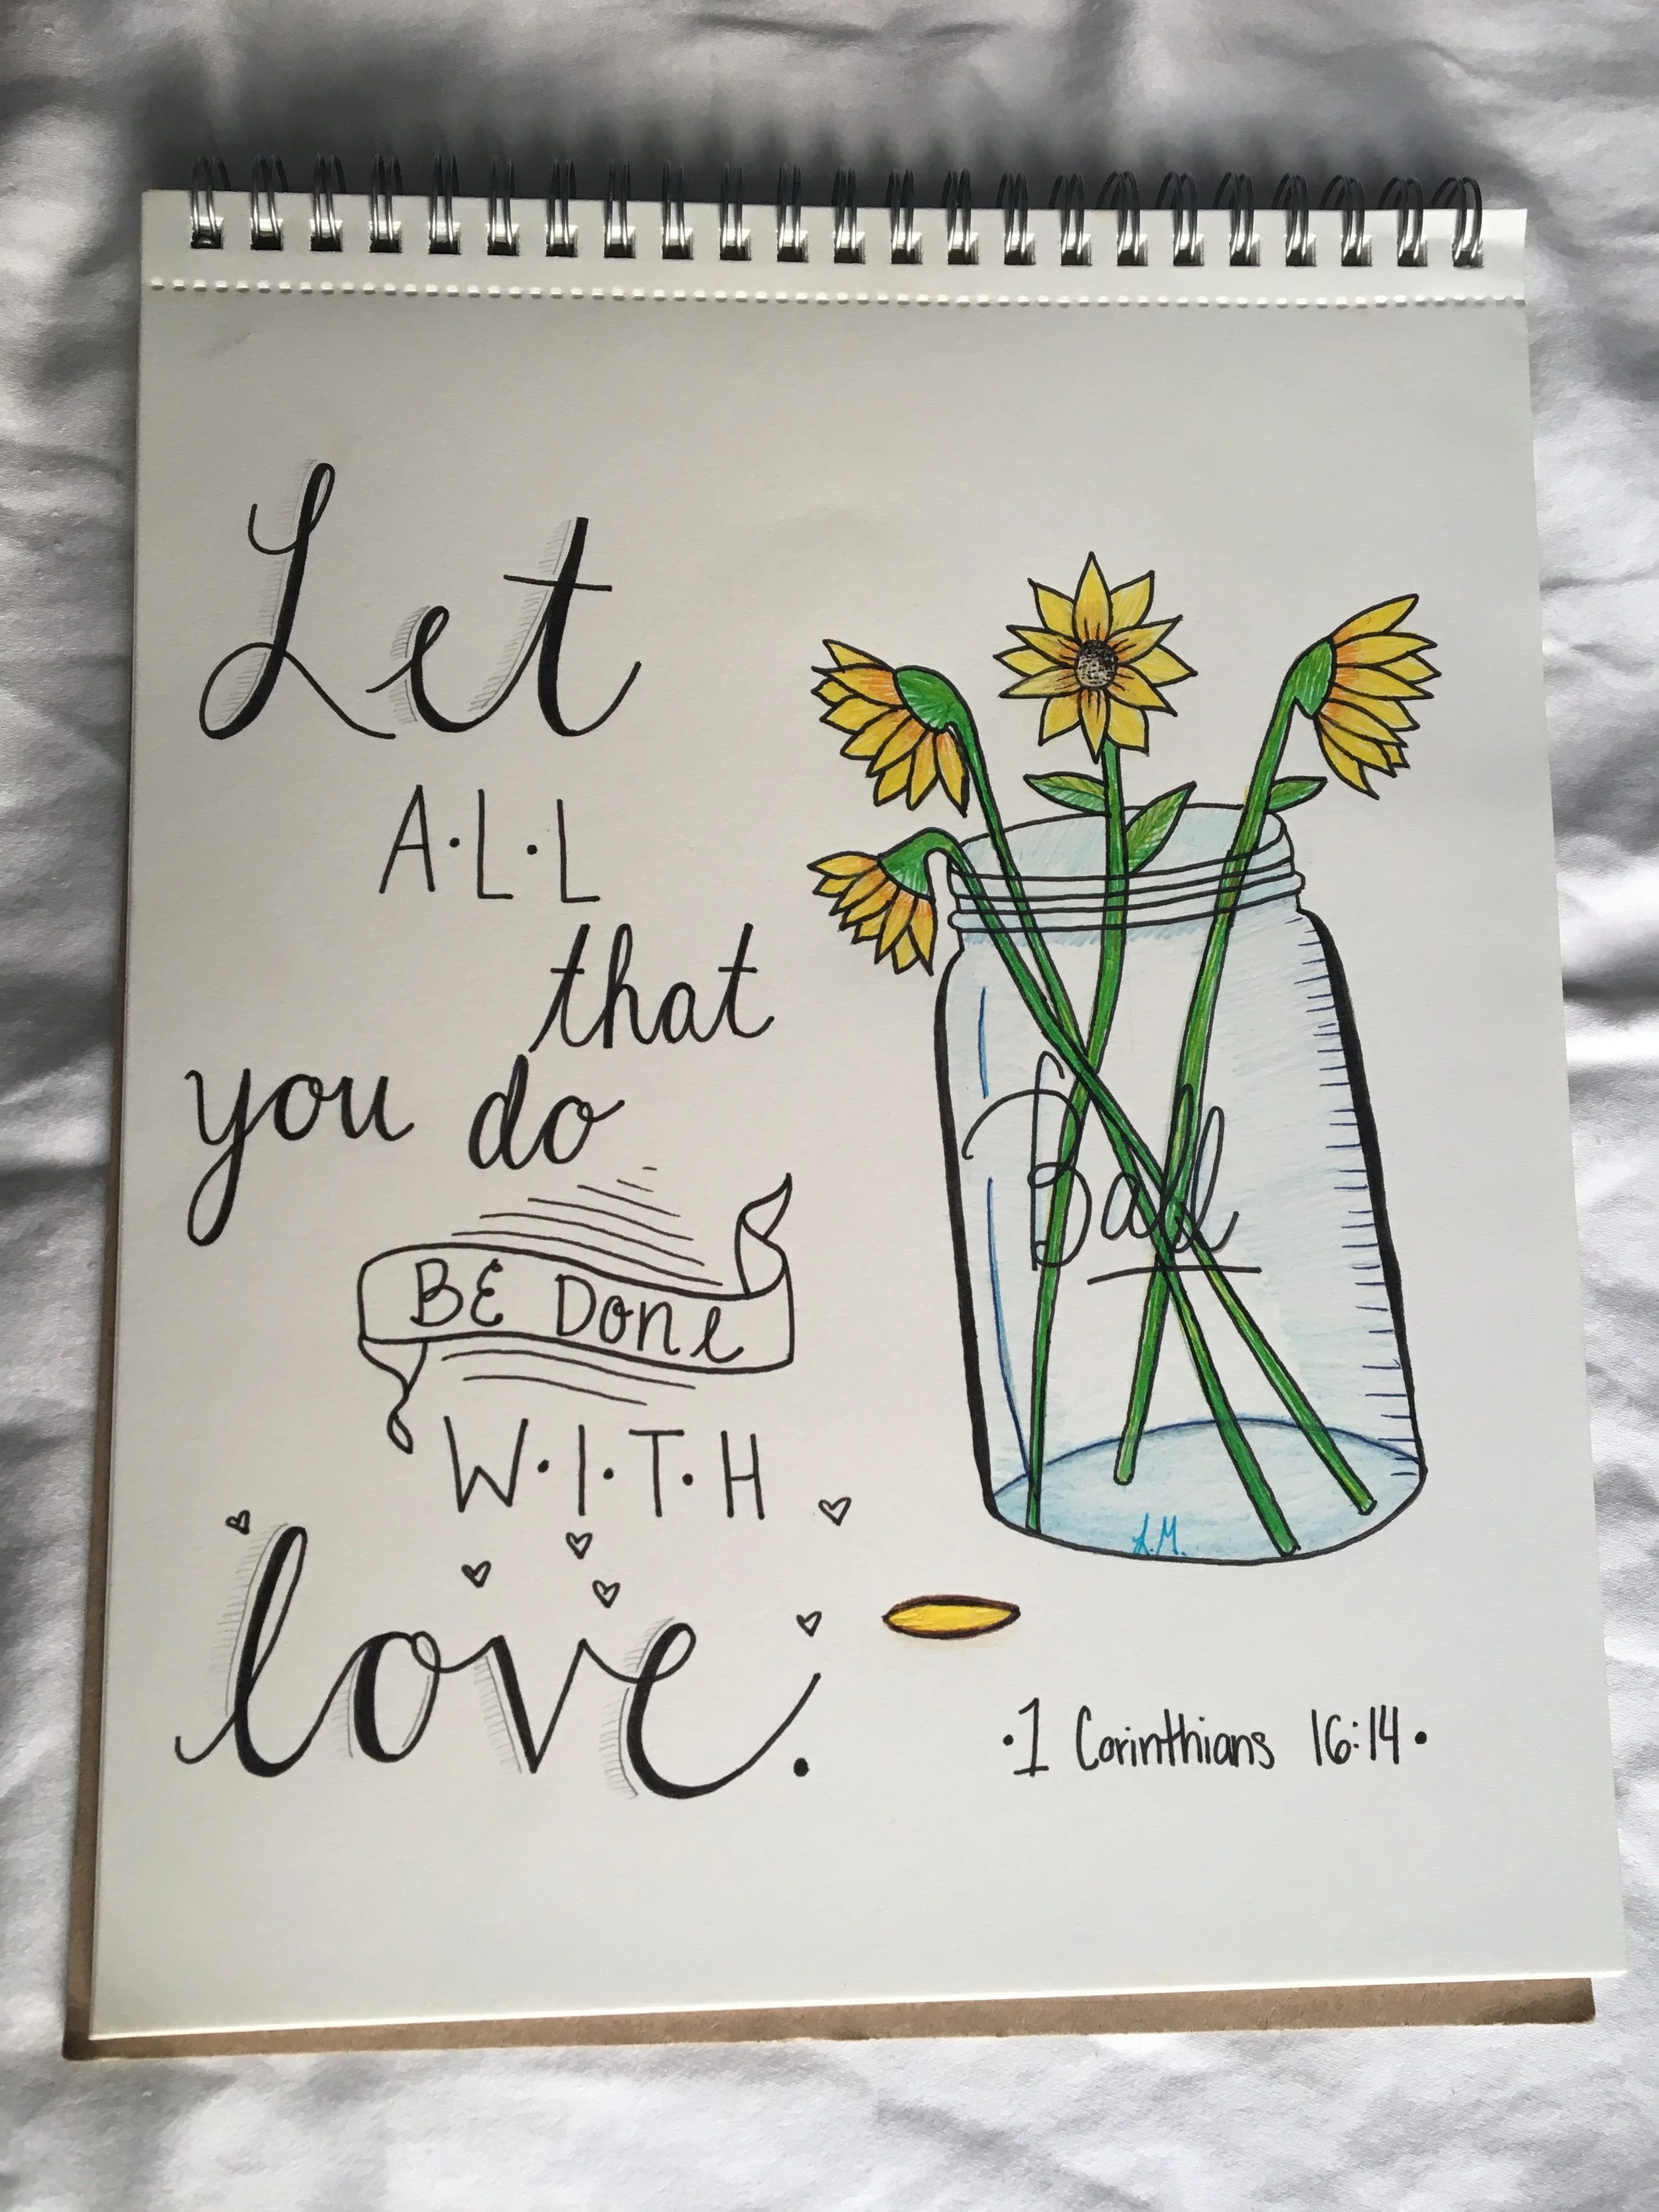 Let
A·L·L
that
you do
BE DONE
W·I·T·H
love.
Ball
A.M.
·1 Corinthians 16:14·